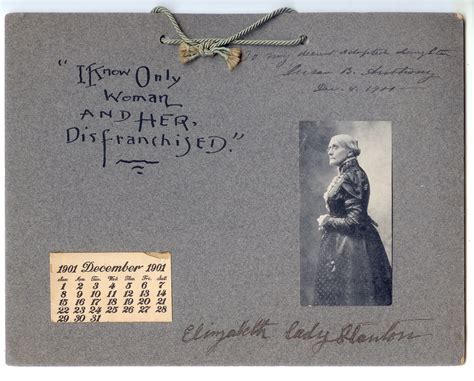 "I Know Only
Woman
AND HER,
Disfranchised."
my adopted daughter
Susan B. Anthony
Dec.
1901 December 1901
Sun. Mon. Tue. Wed. Thu. Fri. Sat.
1 2 3 4 5 6 7
8 9 10 11 12 13 14
15 16 17 18 19 20 21
22 23 24 25 26 27 28
29 30 31
Elizabeth Cady Stanton